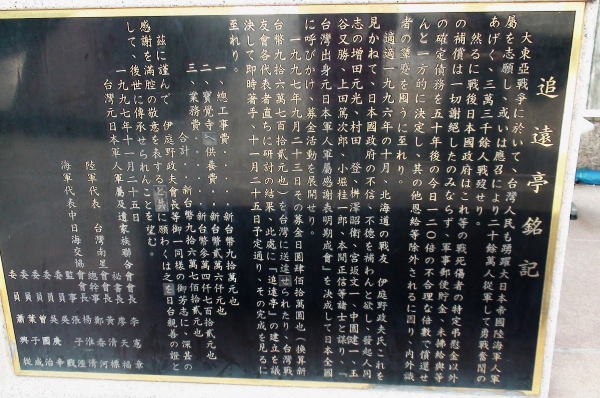 追遠亭銘記
大東亞戰爭に於いて、台灣人民も踴躍大日本帝國陸海軍人軍
屬を志願し、或いは應召により二十餘萬人從軍して勇戰奮鬪の
あげく、三萬三千餘人戰歿せり。
然るに戰後日本國政府はこれ等の戰死傷者の特定弔慰金以外
の補償は一切謝絕したのみならず、軍事郵便貯金、未拂給與等
の確定債務を五十年後の今日一二〇倍の不合理な倍數で償還せ
んと一方的に決定し、其の他恩給等除外されるに因り、内外識
者の
適適一九九六年の十月、北海道の戰友 伊庭野政夫氏これを
見かねて、日本國政府の不信、不德を補わんと欲し、發起人同
志の增田元光、村田 登、桝澤昭衛、宮坂文一、中園健一、玉
谷又勝、上田篤次郎、小堀桂一郎、本間正信等諸士と謀り、「
台灣出身元日本軍人軍屬感謝表明期成會」を決成して日本全國
に呼びかけ、募金活動を展開せり。
一九九七年九月二十三日その募金日圓肆佰拾萬圓也(換算新
台幣九拾六萬七百拾貳元也)を台灣に送達せられたり、台灣戰
友會各代表者直ちに研討の結果、此處に「追遠亭」の建立を議
決して即時著手、十一月二十五日予定通り、その完成を見るに
至れり。
一、總工事費......新台幣九拾萬元也
二、寶覺寺供養費......新台幣貳萬六仟元也
三、業務費......新台幣參萬四仟七百拾貳元也
合計......新台幣九拾六萬七百拾貳元也
茲に謹んで 伊庭野政夫會長等御一同樣の御芳志に、深甚の
感謝を滿腔の敬意を表すると共に願わくは之を日台親善の證と
して、後世に傳承せられんことを望む。
一九九七年十一月二十五日
台灣元日本軍人軍屬及遺家族聯合會
陸軍代表 台灣南星會會長 李憲章
秘書長 廖天福
總幹事 黃清標
海軍代表 中日海交協會會長 鄭春河
總幹事 楊淮清
監事 張 陸
委員 吳子戰
委員 詹國
委員 葉 成治
委員 蕭興從